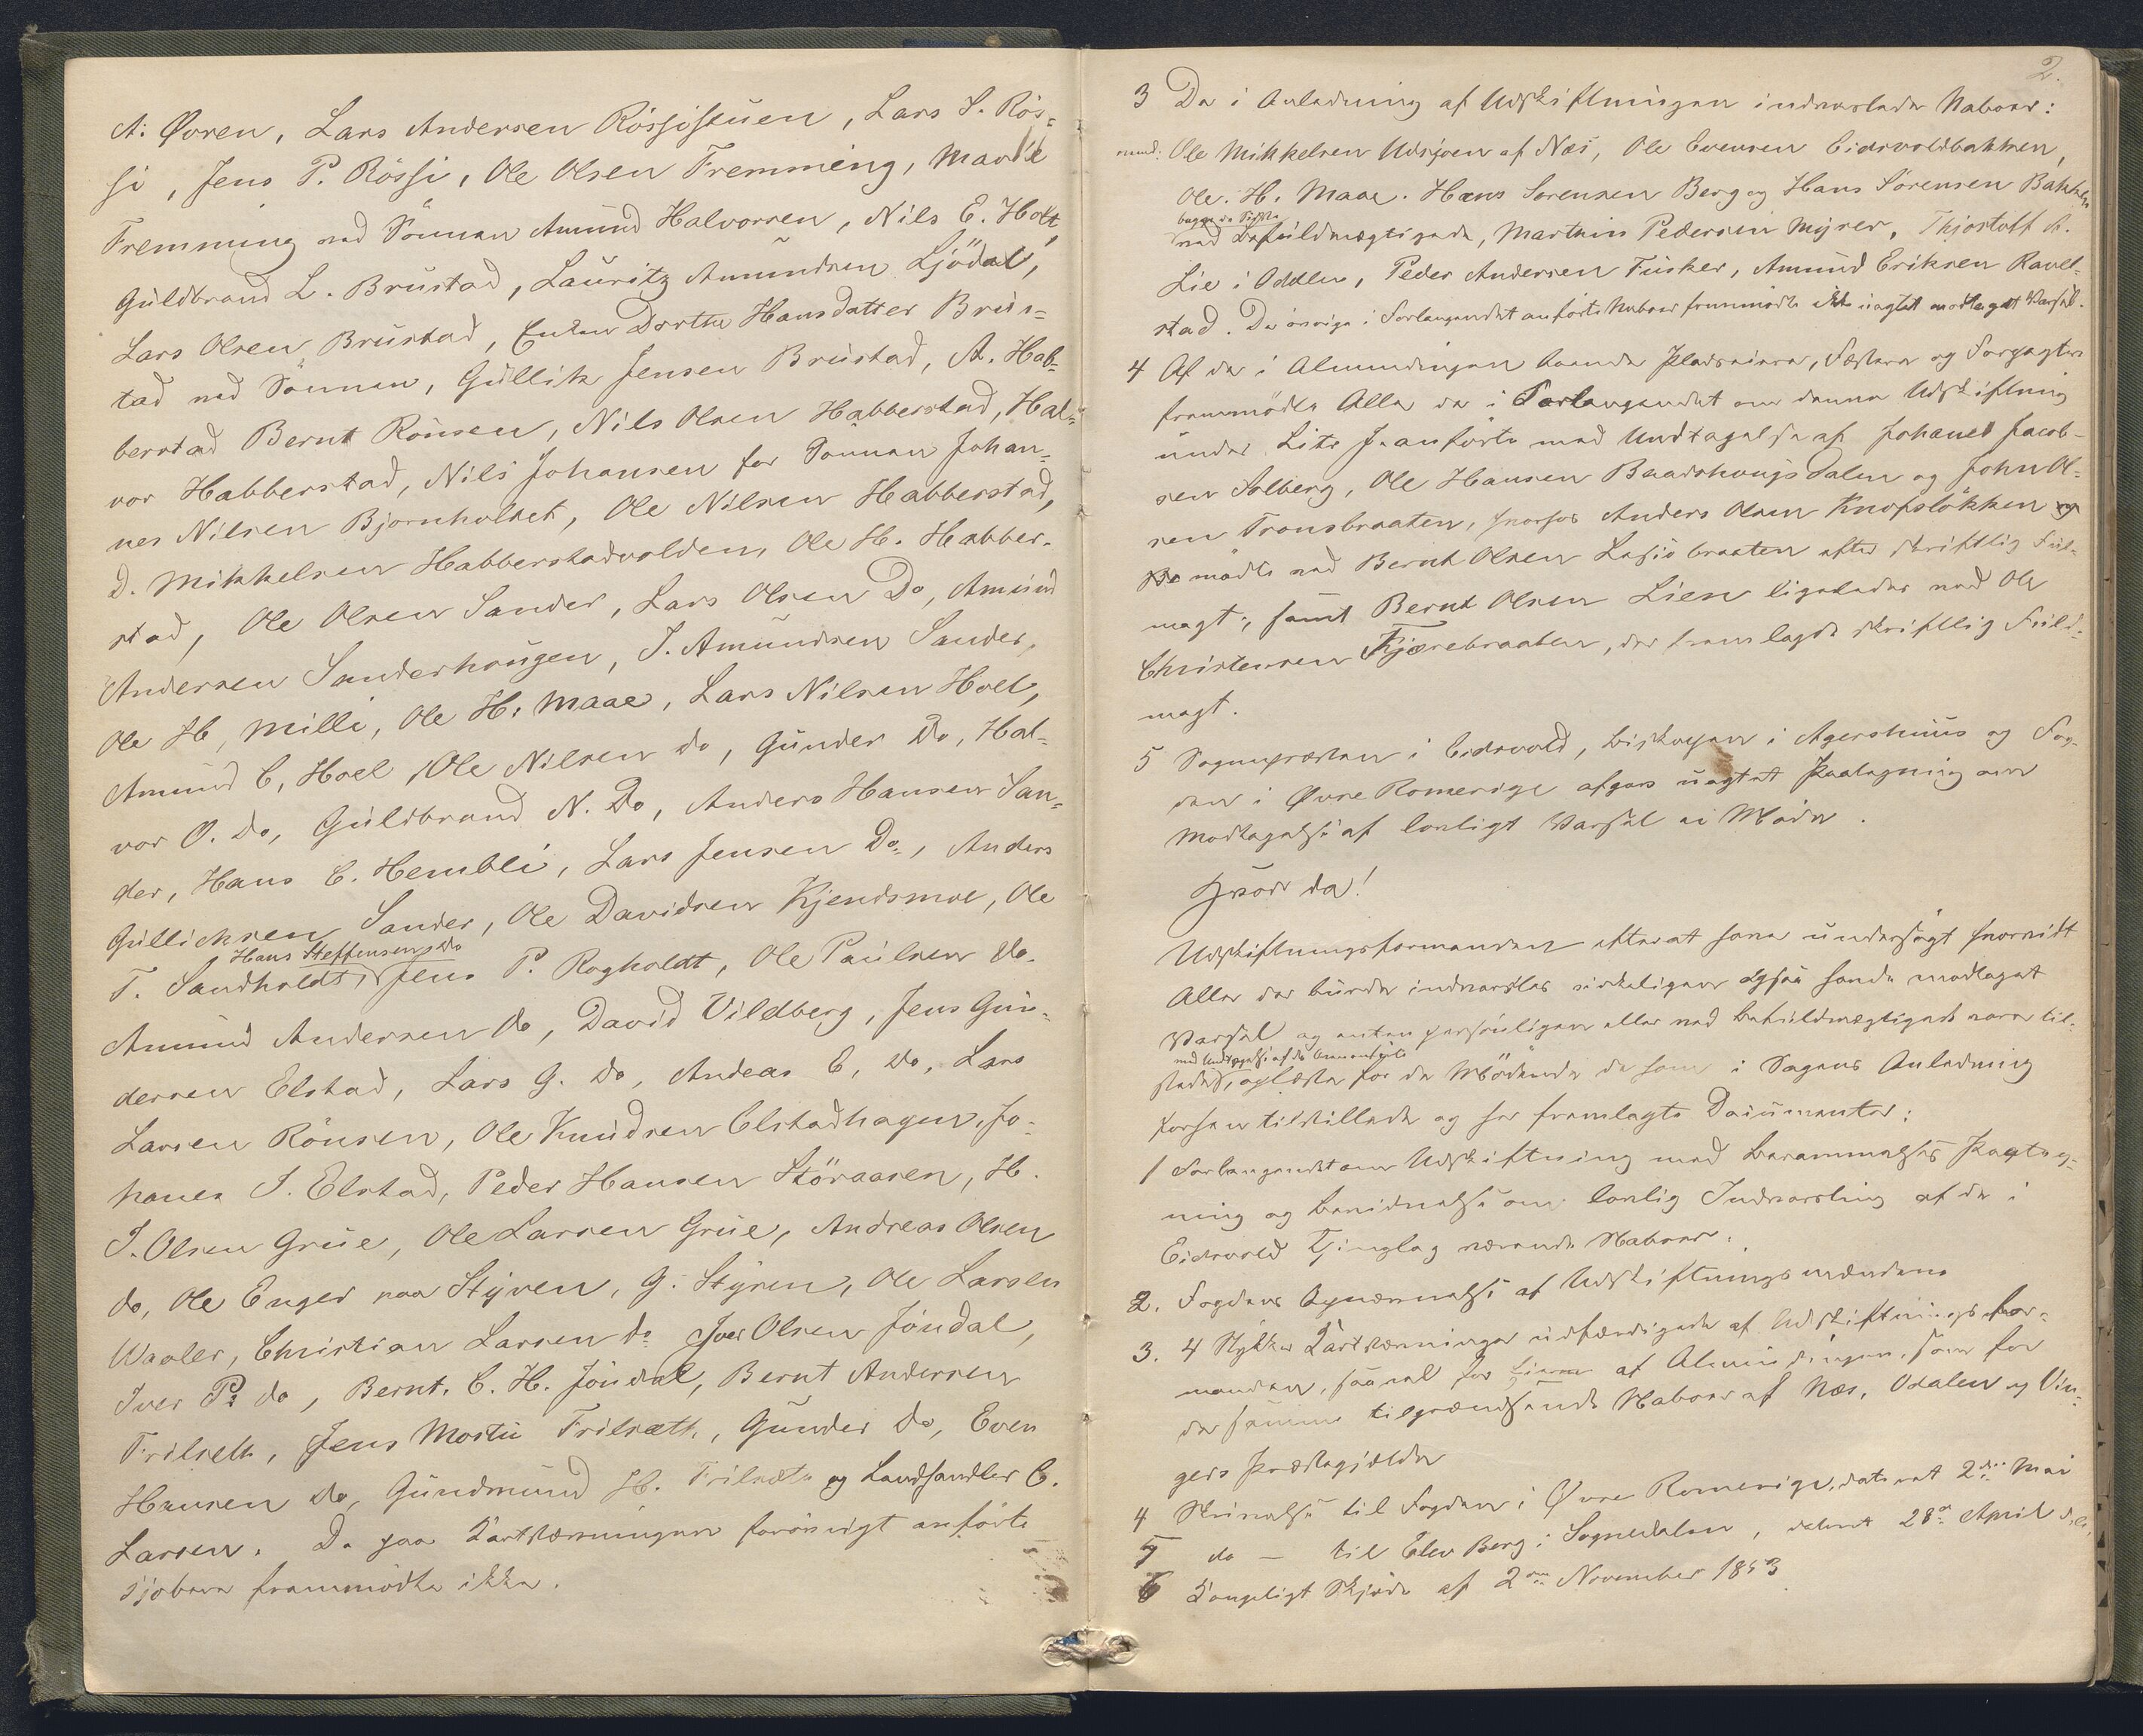 A. Øvren, Lars Andersen Rössistuen, Lars S. Rös=
si, Jens P. Rössi, Ole Olsen Fremming, Marie
Fremming ved Sönnen Amund Halvorsen, Nils E. Holt,
Guldbrand L. Brustad, Lauritz Amundsen Ljödal,
Lars Olsen Brustad, Enken Dorthe Hansdatter Brus=
tad ved Sönnen, Gullik Jensen Brustad, A. Hab=
berstad Bernt Rönsen, Nils Olsen Habberstad, Hal=
vor Habberstad, Nils Johansen for Sönnen Johan=
nes Nilsen Bjornholtet, Ole Nilsen Habberstad,
D. Mikkelsen Habberstadvolden, Ole H. Habber-
stad, Ole Olsen Sander, Lars Olsen Do, Amund
Andersen Sanderhougen, J. Amundsen Sander,
Ole H, Milli, Ole H. Maae, Lars Nilsen Hoel,
Amund C, Hoel, Ole Nilsen do, Gunder Do, Hal=
vor O. do, Guldbrand N. Do, Anders Hansen San=
der, Hans C. Hembli, Lars Jensen Do, Anders
Gullichsen Sander, Ole Davidsen Kjendsmoe, Ole
Hans Steffensen do
T. Sandholdt, Jens P. Rogholdt, Ole Paulsen do.
Amund Andersen do, David Vildberg, Jens Gun=
dersen Elstad, Lars G. do, Andeas C, do, Lars
Larsen Rönsen, Ole Knudsen Elstadhagen, Jo=
hanes J. Elstad, Peder Hansen Störaasen, H.
J. Olsen Grue, Ole Larsen Grue, Andreas Olsen
do, Ole Enger paa Styren, G. Styren, Ole Larsen
Waaler, Christian Larsen do Iver Olsen Jöndal,
Iver P. do, Bernt. C. H. Jöndal, Bernt Andersen
Frilseth, Jens Mostu Frilsæth, Gunder do, Even
Hansen do, Gundmund H. Frilsæth og Landhandler C.
Larsen. De paa Kartskorningen forövrigt anförte
Kjöbere fremmödte ikke.
2.
3 De i Anledning af Udskiftningen indvarslede Naboer:
Ole Mikkelsen Udsjoen af Næs, Ole Evensen Eidsvoldbakken,
Ole. H. Maae. Hans Sorensen Berg og Hans Sörensen Bakken
begge de Sidste
ved Befuldmægtigede, Marthin Pedersen Myrer, Thjostolf A.
Lie i Odalen, Peder Andersen Fusker, Amund Eriksen Ravel=
stad. De övrige i Forlangendet anförte Naboer fremmödte ikke uagtet modtaget Varsel.
4 Af de i Almendingen boende Pladseiere, Fæstere og Forpagtere
fremmödte Alle de i Forlangendet om denne Udskiftning
under Lit. J. anförte med Undtagelse af Johanes Jacob-
sen Solberg, Ole Hansen Baardshougsdalen og John Ol=
sen Tronsbraaten, hvorfor Anders Olsen Knofslökken
mödte ved Bernt Olsen Lasisbraaten efter skriftlig Ful=
magt, samt Bernt Olsen Lien ligeledes ved Ole
Christensen Kjærebraaten, der fremlagde skriftlig Fuld=
magt.
5 Sognepræsten i Eidsvold, Biskopen i Agershuus og Fog-
den i Øvre Romerige afgav uagtet Paategning om
Modtagelse af lovligt Varsel ei Möde.
Hvor da!
Udskiftningsformanden efterat have undersögt hvorvidt
Alle der burde indvarsles virkeligen ogsaa havde modtaget
Varsel og enten personligen eller ved Befuldmægtigede vare til=
med Undtagelse af de ovenanförte
stede, oplæste for de Mödende de ham i Sagens Anledning
forhen tilstillede og her fremlagte Documenter:
1 Forlangendet om Udskiftning med Berammelses Paateg=
ning og Bevidnelse om lovlig Indvarsling af de i
Eidsvold Thinglag værende Naboer.
2. Fogdens Opnævnelse af Udskiftningsmændene
3. 4 Stykker Kartskorninger udfærdigede af Udskiftningsfor=
manden, saavel for Eierne af Almindingen, som for
de samme tilgrændsende Naboer af Næs, Odalen og Vin=
gers Præstegjelde
4 Skrivelse til Fogden i Øvre Romerige, dateret 2den Mai
5 do – til Elev Berg i Sognedalen, dateret 28de April d.A.
6 Kongeligt Skjøde af 2den November 1853